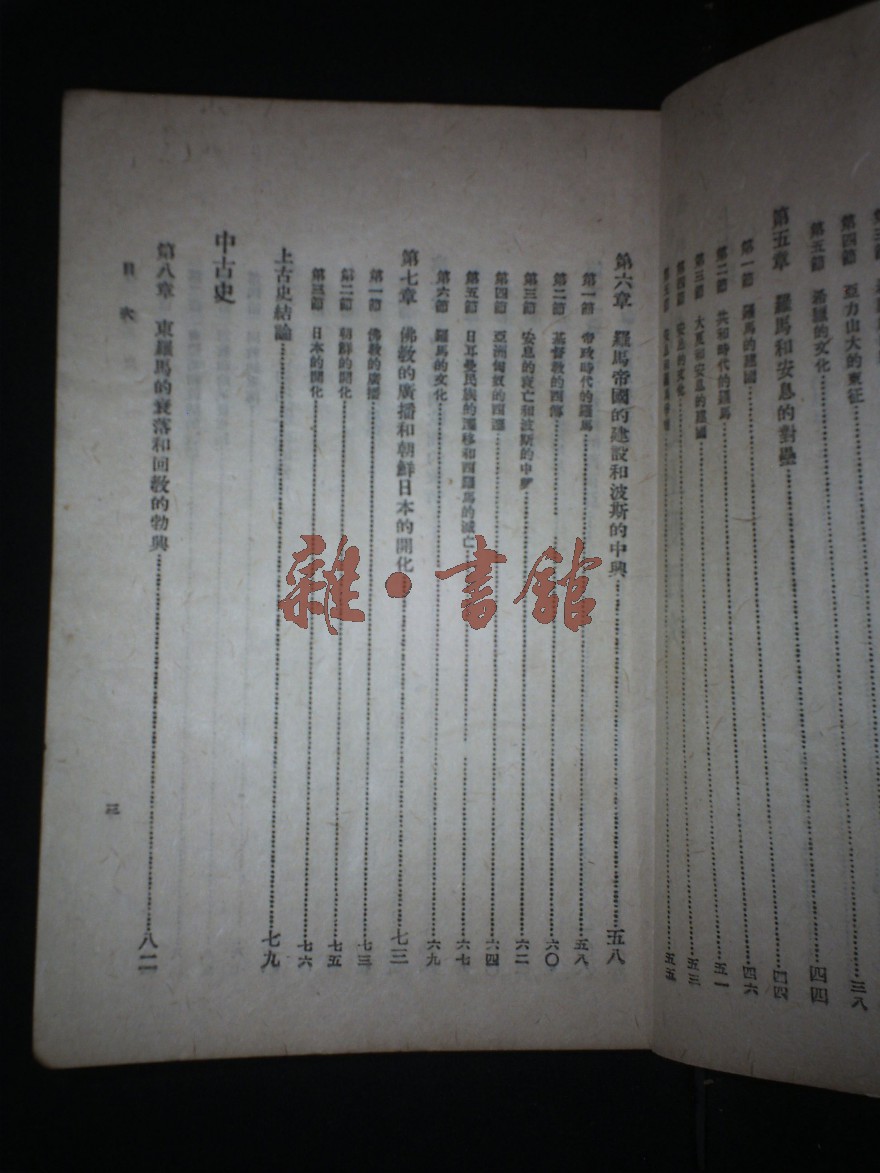 第四節 亞力山大的東征 三八
第五節 希臘的文化 四四
第五章 羅馬和安息的對壘 四四
第一節 羅馬的建國 四六
第二節 共和時代的羅馬 五一
第三節 大夏和安息的建國 五三
第四節 安息的文化 五五
第五節 五五
第六章 羅馬帝國的建設和波斯的中興 五八
第一節 帝政時代的羅馬 五八
第二節 基督教的西傳 六〇
第三節 安息的衰亡和波斯的中興 六二
第四節 亞洲匈奴的西遷 六四
第五節 日耳曼民族的遷移和西羅馬的滅亡 六七
第六節 羅馬的文化 六九
第七章 佛教的廣播和朝鮮日本的開化 七三
第一節 佛教的廣播 七三
第二節 朝鮮的開化 七五
第三節 日本的開化 七六
上古史結論 七九
中古史
第八章 東羅馬的衰落和回教的勃興 八二
目次
三
雜·書館